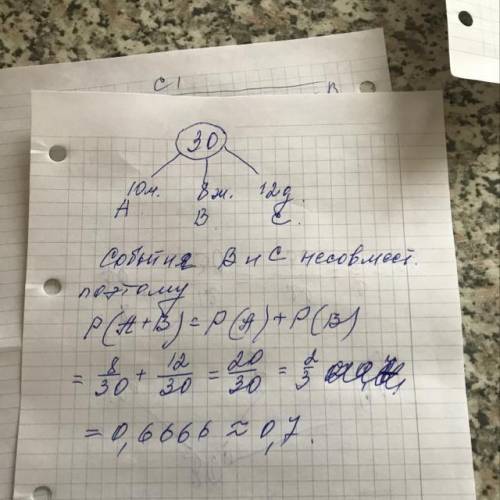 C1
B
30
10м. 8ж. 12д.
A B C.
События B и C несовмест.
поэтому
P(A+B)=P(A)+P(B)
= 8/30 + 12/30 = 20/30 = 2/3
= 0,6666 ≈ 0,7.